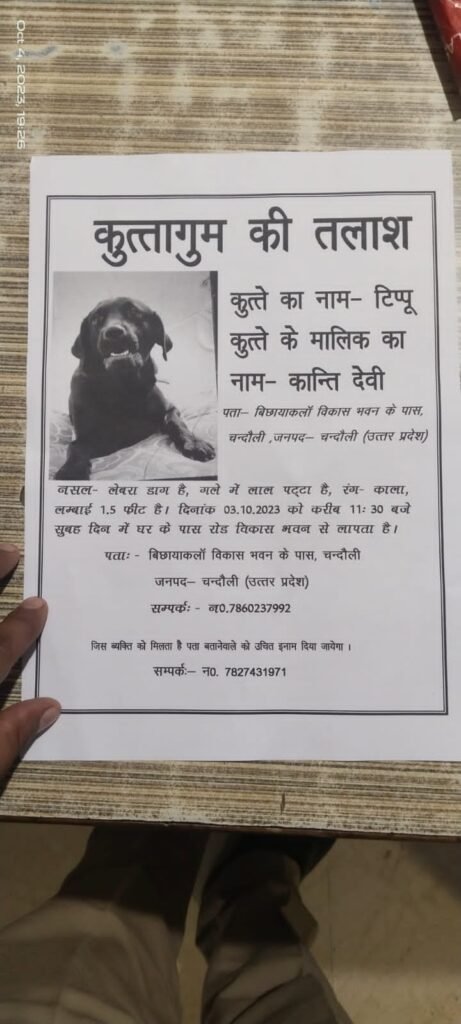 Oct 4, 2023, 19:26
कुत्तागुम की तलाश
कुत्ते का नाम– टिप्पू
कुत्ते के मालिक का
नाम– कान्ति देवी
पता– बिछायाकलॉ विकास भवन के पास,
चन्दौली ,जनपद– चन्दौली (उत्तर प्रदेश)
नसल- लेबरा डाग है, गले में लाल पट्टा है, रंग- काला,
लम्बाई 1.5 फीट है। दिनांक 03.10.2023 को करीब 11: 30 बजे
सुबह दिन में घर के पास रोड विकास भवन से लापता है।
पताः - बिछायाकलॉ विकास भवन के पास, चन्दौली
जनपद– चन्दौली (उत्तर प्रदेश)
सम्पर्कः - न0.7860237992
जिस ब्यक्ति को मिलता है पता बतानेवाले को उचित इनाम दिया जायेगा ।
सम्पर्कः– न0. 7827431971